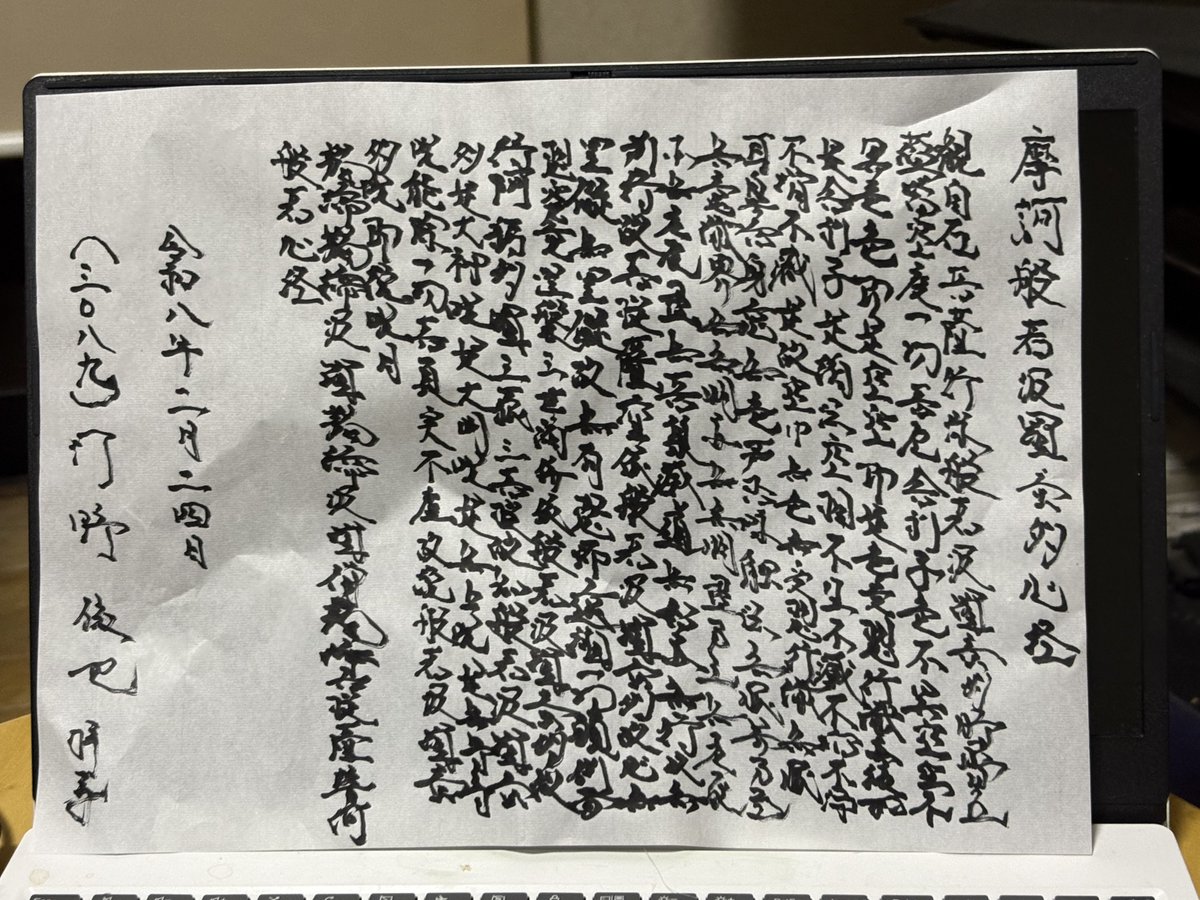 摩訶般若波羅蜜多心経
観自在菩薩行深般若波羅蜜多時照見五
蘊皆空度一切苦厄舎利子色不異空空不
異色色即是空空即是色受想行識亦復如
是舎利子是諸法空相不生不滅不垢不浄
不増不減是故空中無色無受想行識無眼
耳鼻舌身意無色声香味触法無眼界乃至
無意識界無無明亦無無明尽乃至無老死
亦無老死尽無苦集滅道無智亦無得以無
所得故菩提薩埵依般若波羅蜜多故心無
罣礙無罣礙故無有恐怖遠離一切顛倒夢
想究竟涅槃三世諸仏依般若波羅蜜多故
得阿耨多羅三藐三菩提故知般若波羅蜜
多是大神呪是大明呪是無上呪是無等等
呪能除一切苦真実不虚故説般若波羅蜜
多呪即説呪曰
羯諦羯諦波羅羯諦波羅僧羯諦菩提薩婆訶
般若心経
令和八年二月二四日
(三〇八九)行野俊巳 拝写